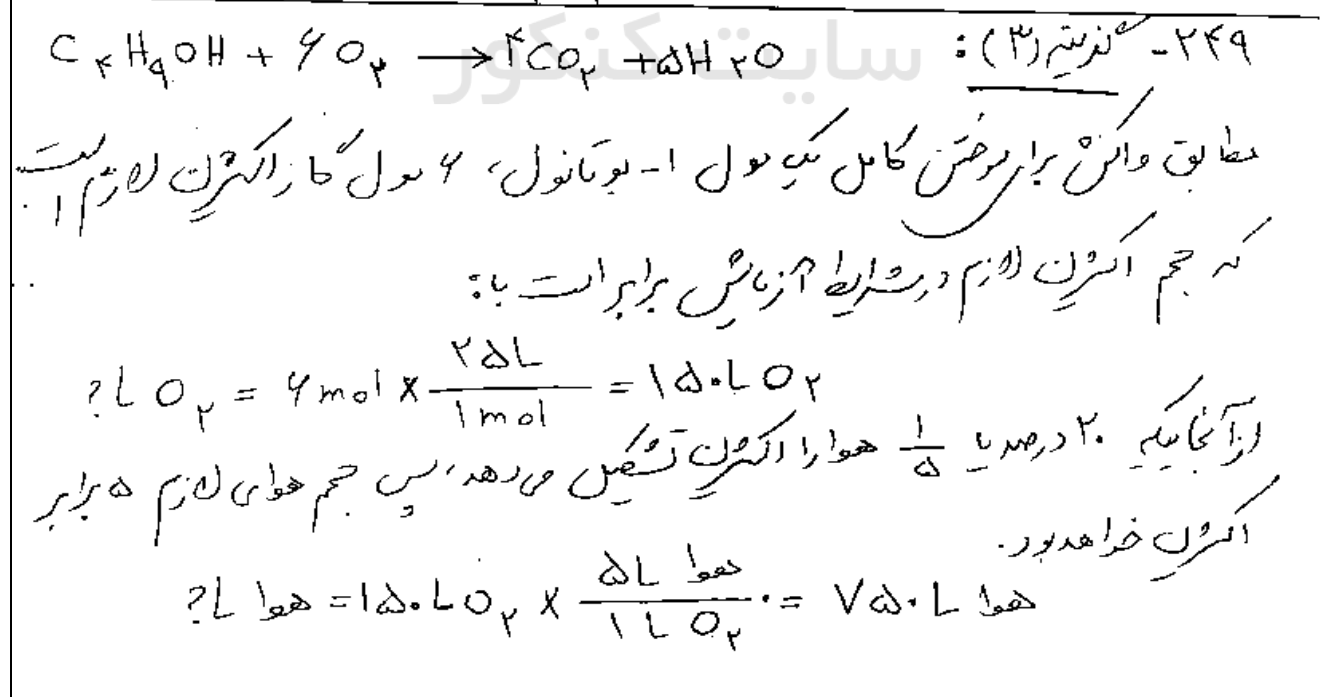 ۲۴۹- گزینه (۳): C۴H۹OH + ۶O۲ → ۴CO۲ + ۵H۲O
سایت کنکور
مطابق واکنش برای سوختن کامل یک مول ۱- بوتانول، ۶ مول گاز اکسیژن لازم است.
که حجم اکسیژن لازم در شرایط آزمایش برابر است با:
?L O۲ = ۶ mol × ۲۵L / ۱ mol = ۱۵۰L O۲
از آنجاییکه ۲۰ درصد یا ۱/۵ هوا را اکسیژن تشکیل می‌دهد، پس حجم هوای لازم ۵ برابر
اکسیژن خواهد بود.
?L هوا = ۱۵۰L O۲ × ۵L هوا / ۱L O۲ = ۷۵۰L هوا